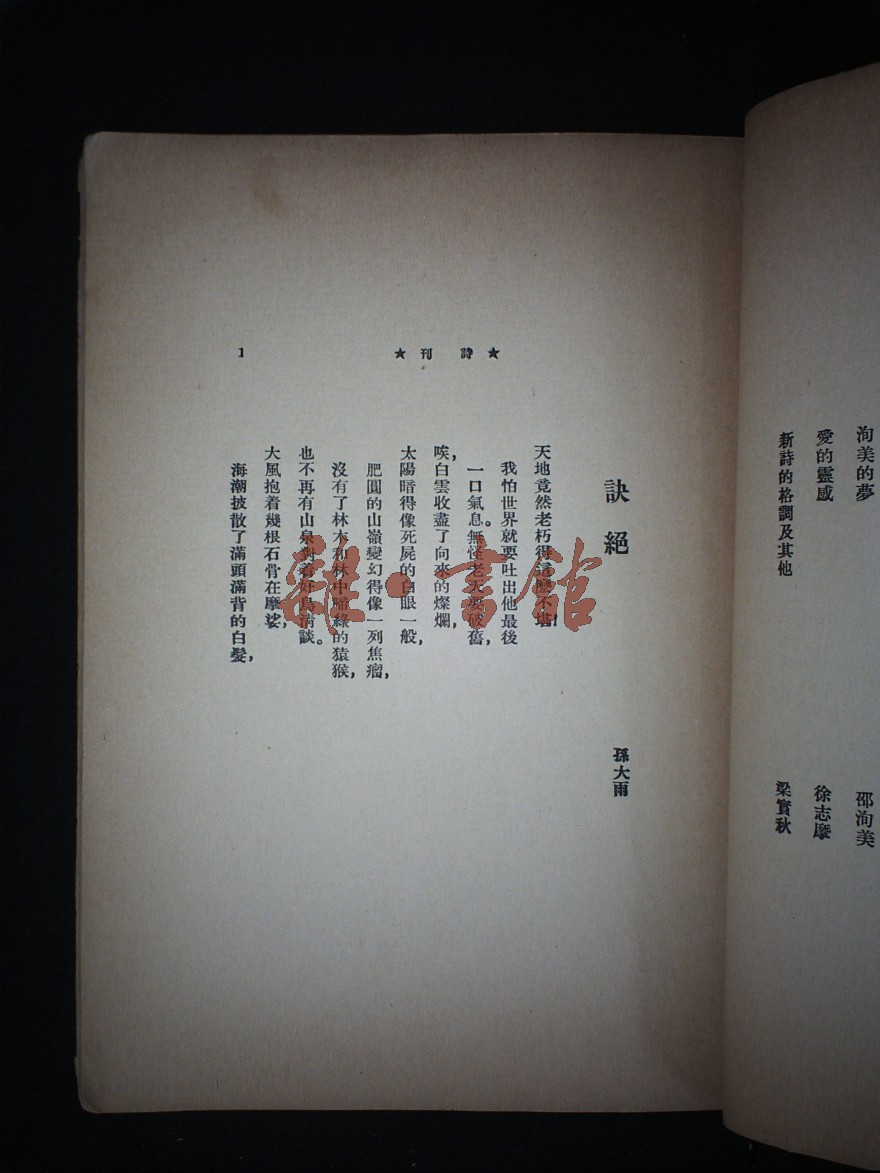 洵美的夢 邵洵美
愛的靈感 徐志摩
新詩的格調及其他 梁實秋
★詩刊★ 1
訣絕
孫大雨
天地竟然老朽得這麼不堪!
我怕世界就要吐出他最後
一口氣息。無怪老天要破舊,
唉,白雲收盡了向來的燦爛,
太陽暗得像死屍的白眼一般,
肥圓的山嶺變幻得像一列焦瘤,
沒有了林木和林中啼綠的猿猴,
也不再有山泉對着好鳥清談。
大風抱着幾根石骨在摩娑,
海潮披散了滿頭滿背的白髮,
雜·書館